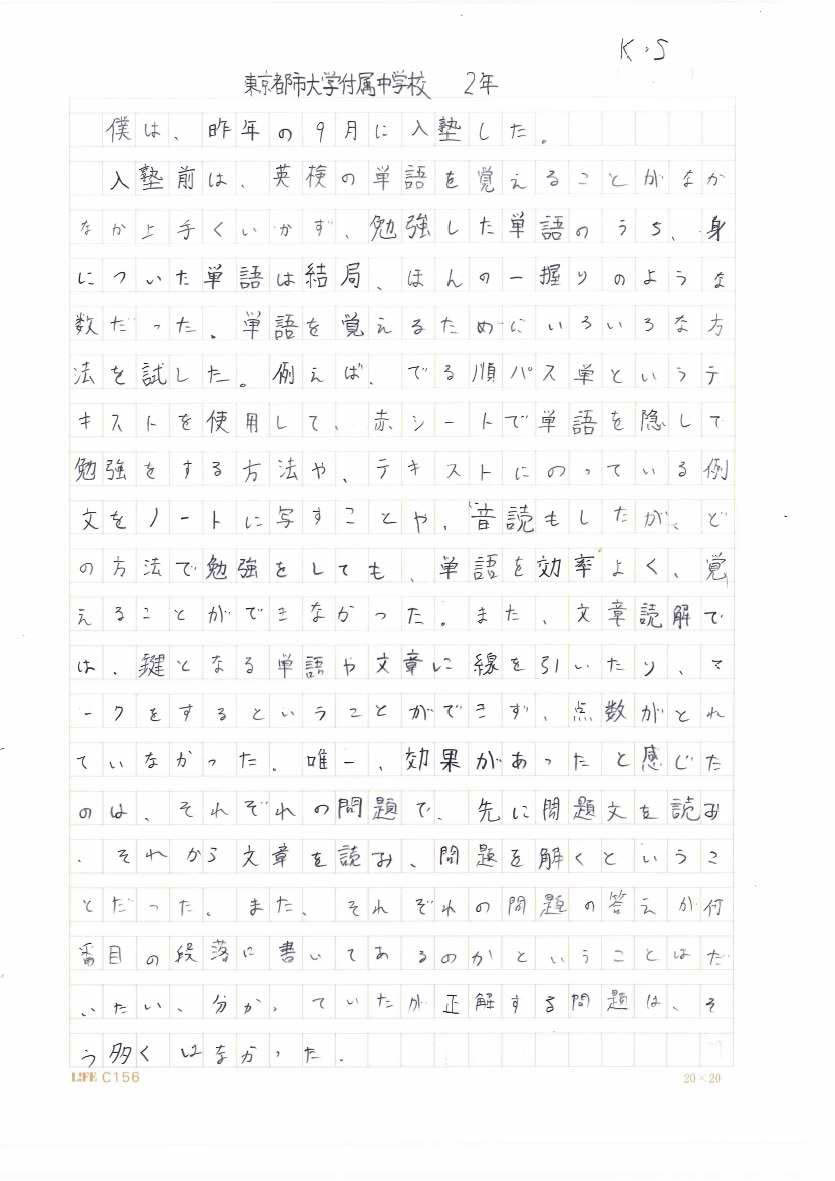 K・S
東京都市大学付属中学校 2年
僕は、昨年の9月に入塾した。
入塾前は、英検の単語を覚えることがなか
なか上手くいかず、勉強した単語のうち、身
についた単語は結局、ほんの一握りのような
数だった。単語を覚えるためにいろいろな方
法を試した。例えば、でる順パス単というテ
キストを使用して、赤シートで単語を隠して
勉強をする方法や、テキストにのっている例
文をノートに写すことや、音読もしたが、ど
の方法で勉強をしても、単語を効率よく、覚
えることができなかった。また、文章読解で
は、鍵となる単語や文章に線を引いたり、マ
ークをするということができず、点数がとれ
ていなかった。唯一、効果があったと感じた
のは、それぞれの問題で、先に問題文を読み
、それから文章を読み、問題を解くというこ
とだった。また、それぞれの問題の答えが何
番目の段落に書いてあるのかということはだ
いたい、分かっていたが正解する問題は、そ
う多くはなかった。
LIFE C156
20×20